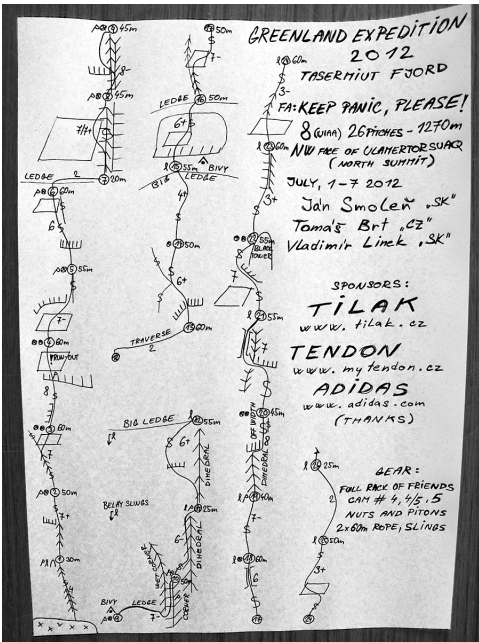 GREENLAND EXPEDITION
2012
TASERMIUT FJORD
FA: KEEP PANIC, PLEASE!
8 (UIAA) 26 PITCHES - 1270m
NW FACE OF ULAMERTORSUAQ
(NORTH SUMMIT)
JULY, 1-7 2012
Ján Smoleň "SK"
Tomáš Brt "CZ"
Vladimír Linek "SK"
SPONSORS:
TILAK
www.tilak.cz
TENDON
www.mytendon.cz
ADIDAS
www.adidas.com
(THANKS)
GEAR:
FULL RACK OF FRIENDS
CAM # 4, 4/5, 5
NUTS AND PITONS
2x60m ROPE, SLINGS
45m
8-
45m
7/7+
LEDGE 2
7 20m
6 60m
6
5 55m
7-
4 60m
8
3 60m
7
2 50m
7+
1 30m
50m
7-
LEDGE 16 50m
6+
BIVY
15 55m
BIG LEDGE
4+
14 50m
6+
13 60m
TRAVERSE
2
BIG LEDGE 55m
6+
DIHEDRAL
BELAY SLINGS
25m
6-
DIHEDRAL
50m
CORNER
BIVY LEDGE
7-
60m
3-
60m
3+
22 55m
BLACK
TOWER
7
21 55m
7
20 45m
OFFWIDTH
DIHEDRAL
40m
7-
18 60m
6
17
26 25m
2
50m
3+